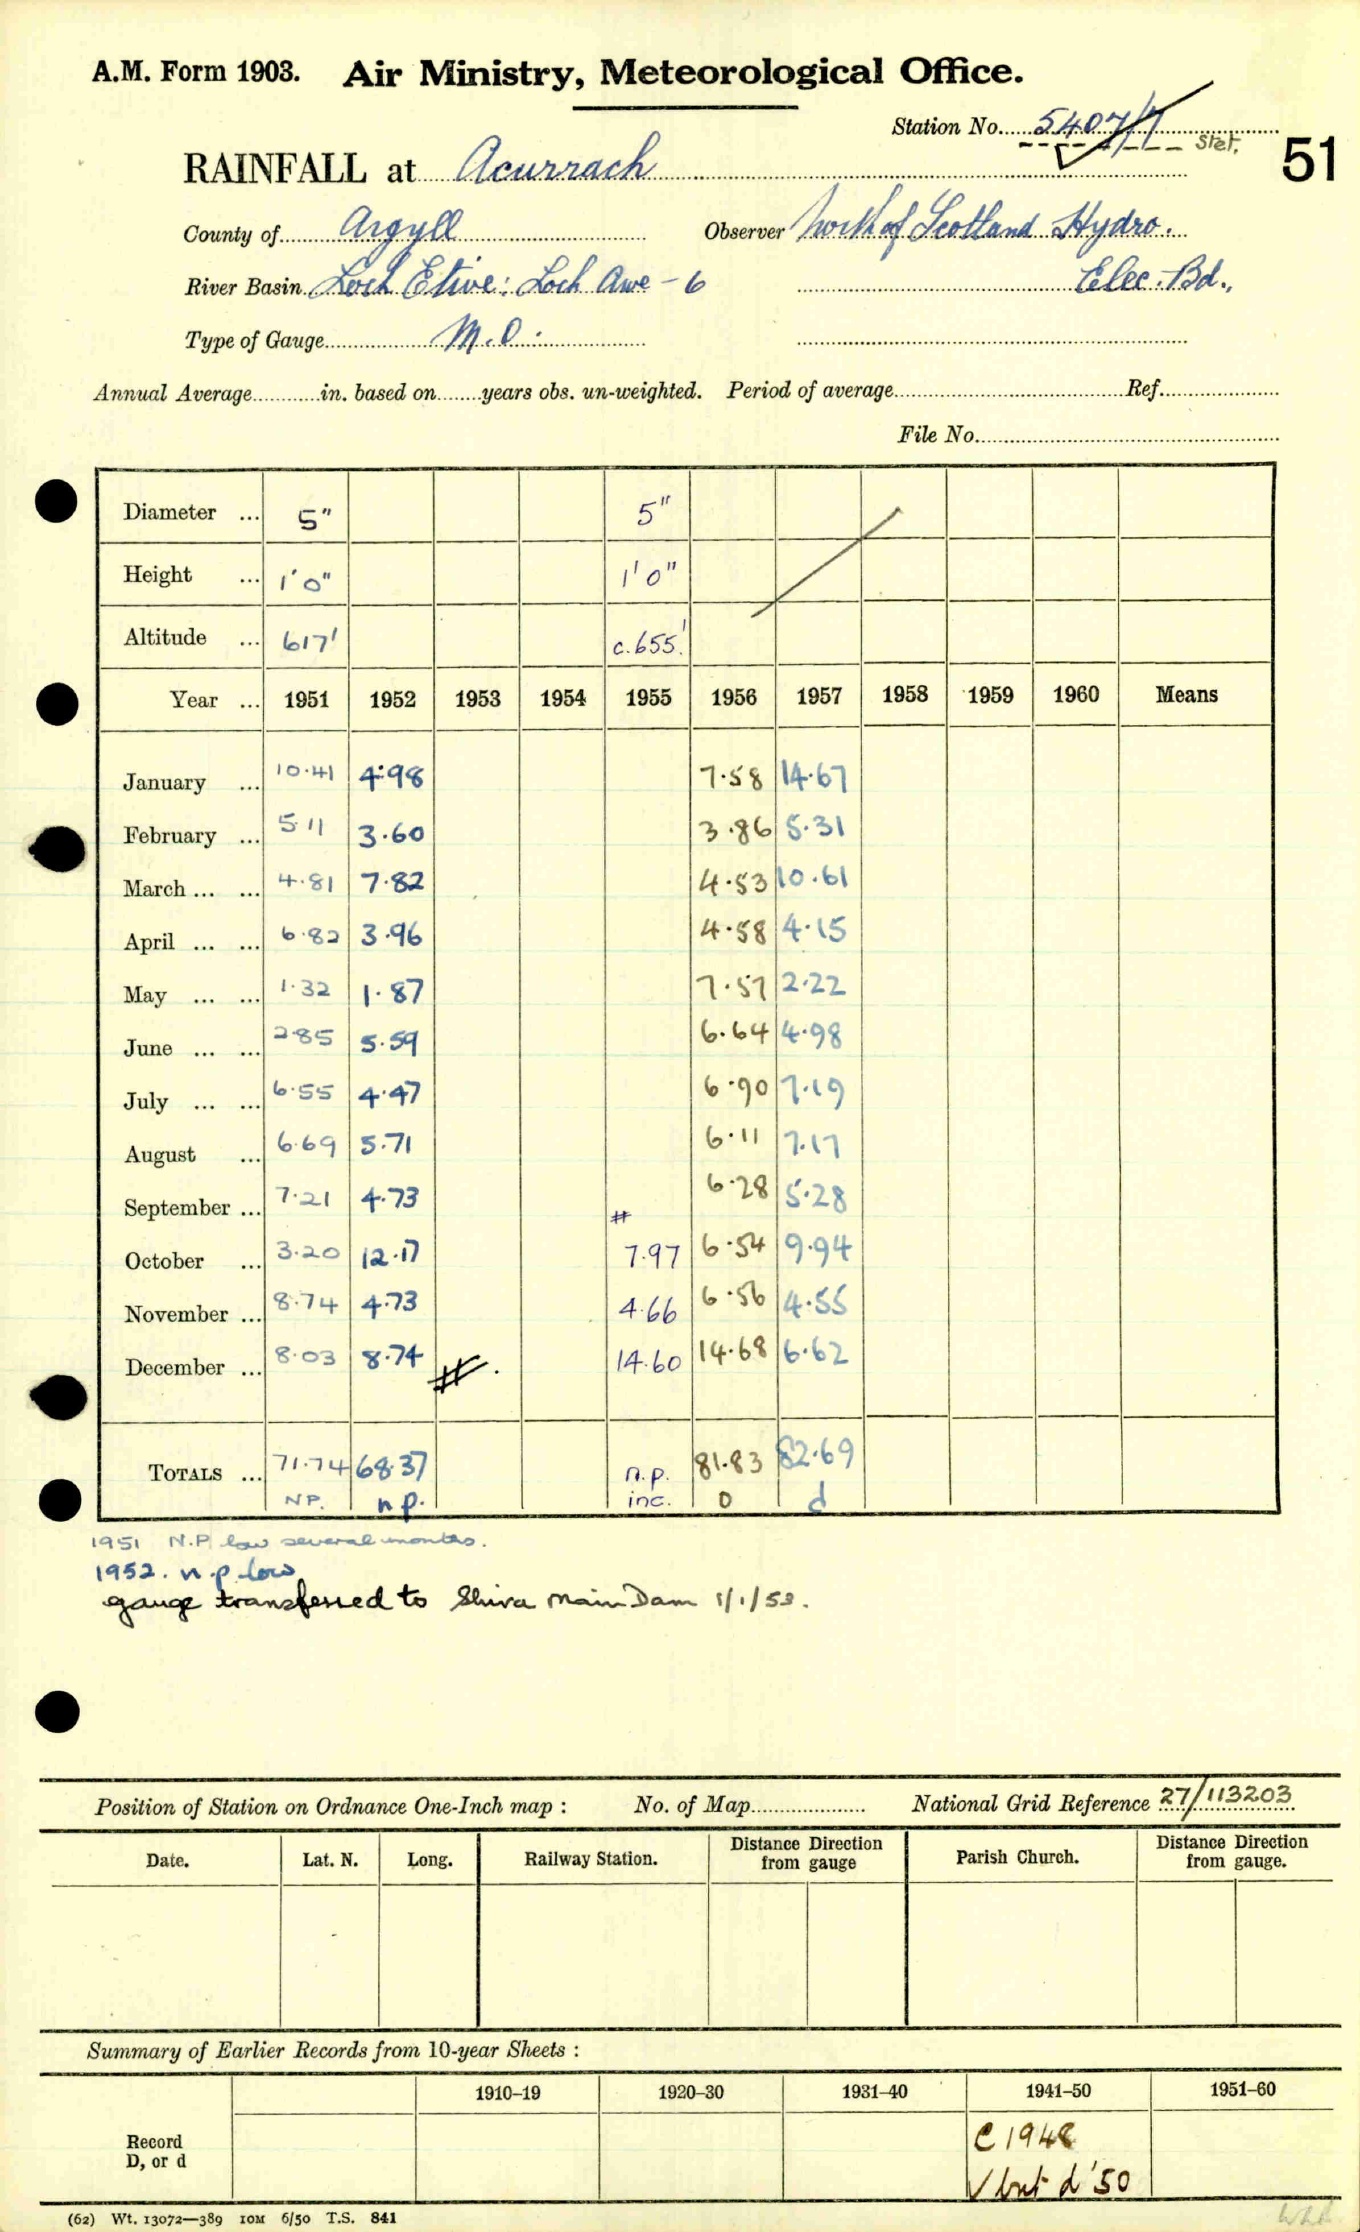 A.M. Form 1903. Air Ministry, Meteorological Office.
Station No. 5407/7 Stet.
51
RAINFALL at Acurrach
County of Argyll Observer North of Scotland Hydro.
River Basin Loch Etive: Loch Awe - 6 Elec. Bd.,
Type of Gauge M.O.
Annual Average in. based on years obs. un-weighted. Period of average Ref.
File No.
Diameter ... 5" 5"
Height ... 1'0" 1'0"
Altitude ... 617' c.655'
Year ... 1951 1952 1953 1954 1955 1956 1957 1958 1959 1960 Means
January ... 10.41 4.98 7.58 14.67
February ... 5.11 3.60 3.86 5.31
March ... ... 4.81 7.82 4.53 10.61
April ... ... 6.82 3.96 4.58 4.15
May ... ... 1.32 1.87 7.57 2.22
June ... ... 2.85 5.59 6.64 4.98
July ... ... 6.55 4.47 6.90 7.19
August ... 6.69 5.71 6.11 7.17
September ... 7.21 4.73 # 6.28 5.28
October ... 3.20 12.17 7.97 6.54 9.94
November ... 8.74 4.73 4.66 6.56 4.55
December ... 8.03 8.74 #. 14.60 14.68 6.62
TOTALS ... 71.74 68.37 n.p. 81.83 82.69
NP. n.p. inc. 0 d
1951 N.P. low several months.
1952. n.p. low
gauge transferred to Shira Main Dam 1/1/53.
Position of Station on Ordnance One-Inch map : No. of Map National Grid Reference 27/113203
Date. Lat. N. Long. Railway Station. Distance Direction from gauge Parish Church. Distance Direction from gauge.
Summary of Earlier Records from 10-year Sheets :
1910–19 1920–30 1931–40 1941–50 1951–60
Record
D, or d
C 1948
√ but d '50
(62) Wt. 13072—389 10M 6/50 T.S. 841